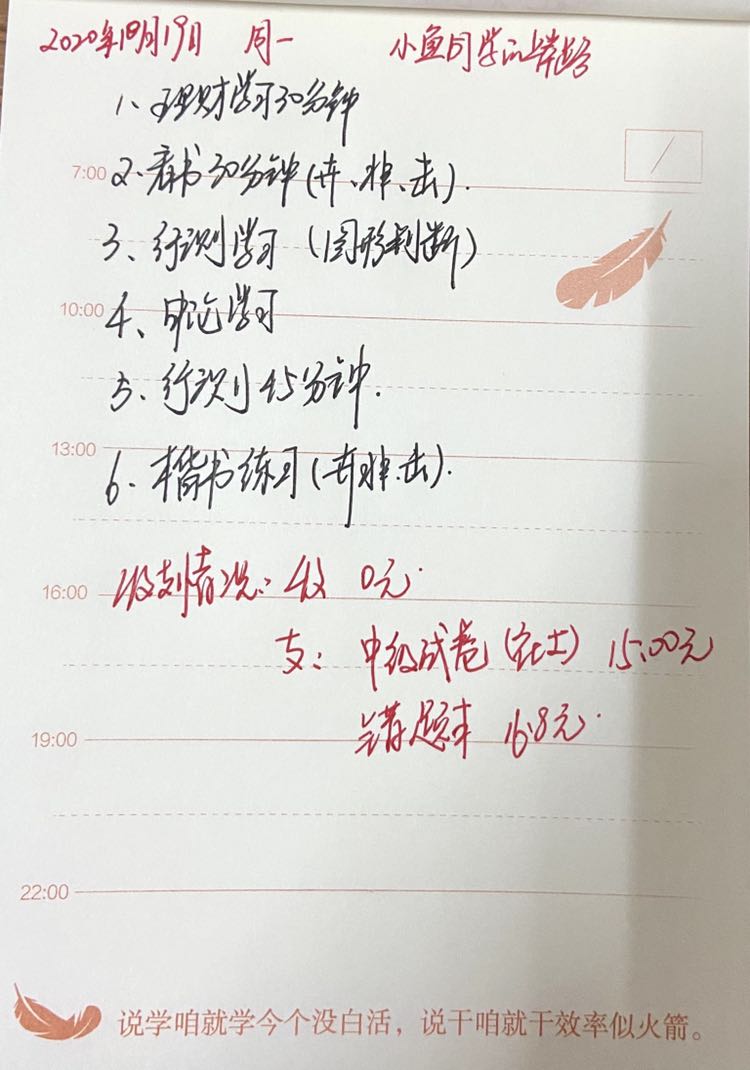 2020年10月19日 周一 小鱼同学的
1、理财学习30分钟
7:00
2、看书30分钟(卉、焯、击).
3、行测学习(图形判断)
10:00
4、申论学习
5、行测45分钟.
13:00
6、楷书练习(卉.焯.击).
16:00
收支情况: 收 0元.
支: 中级试卷(社士) 15.00元
19:00
错题本 16.8元.
22:00
说学咱就学今个没白活，说干咱就干效率似火箭。